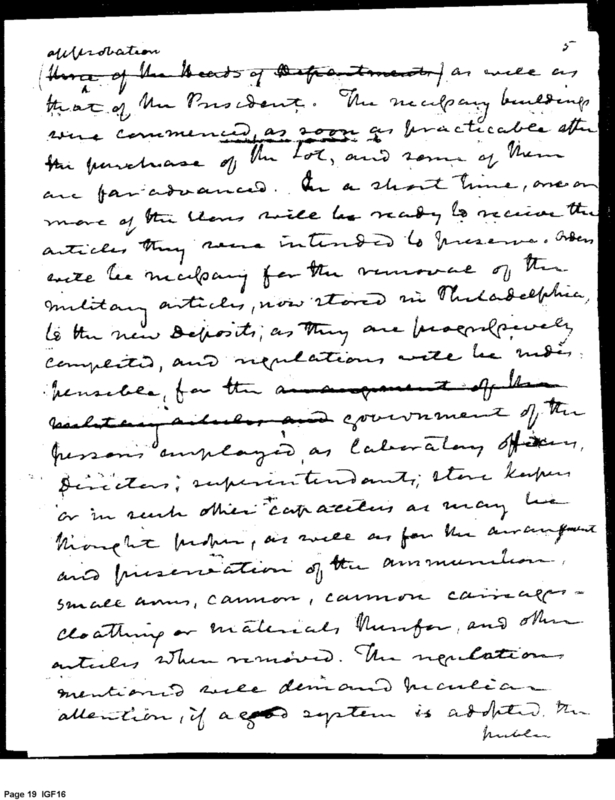 approbation 5
(~~those of the Heads of Departments~~) as well as
that of the President. The necessary buildings
were commenced, as soon as practicable after
the purchase of the Lot, and some of them
are far advanced. In a short time, one or
more of the stores will be ready to receive the
articles they were intended to preserve. Orders
will be necessary for the removal of the
military articles, now stored in Philadelphia,
to the new Deposits, as they are progressively
completed, and regulations will be indis:
pensible, for the ~~arrangement of the~~
~~military articles and~~ government of the
persons employed, as Laboratory officers,
Directors; superintendants; store keepers
or in such other capacities as may be
thought proper, as well as for the arrangement
and preservation of the ammunition,
small arms, cannon, cannon carriages =
cloathing or materials therefor, and other
articles when removed. The regulations
mentioned will demand peculiar
attention, if a good system is adopted. the
public
Page 19 IGF16